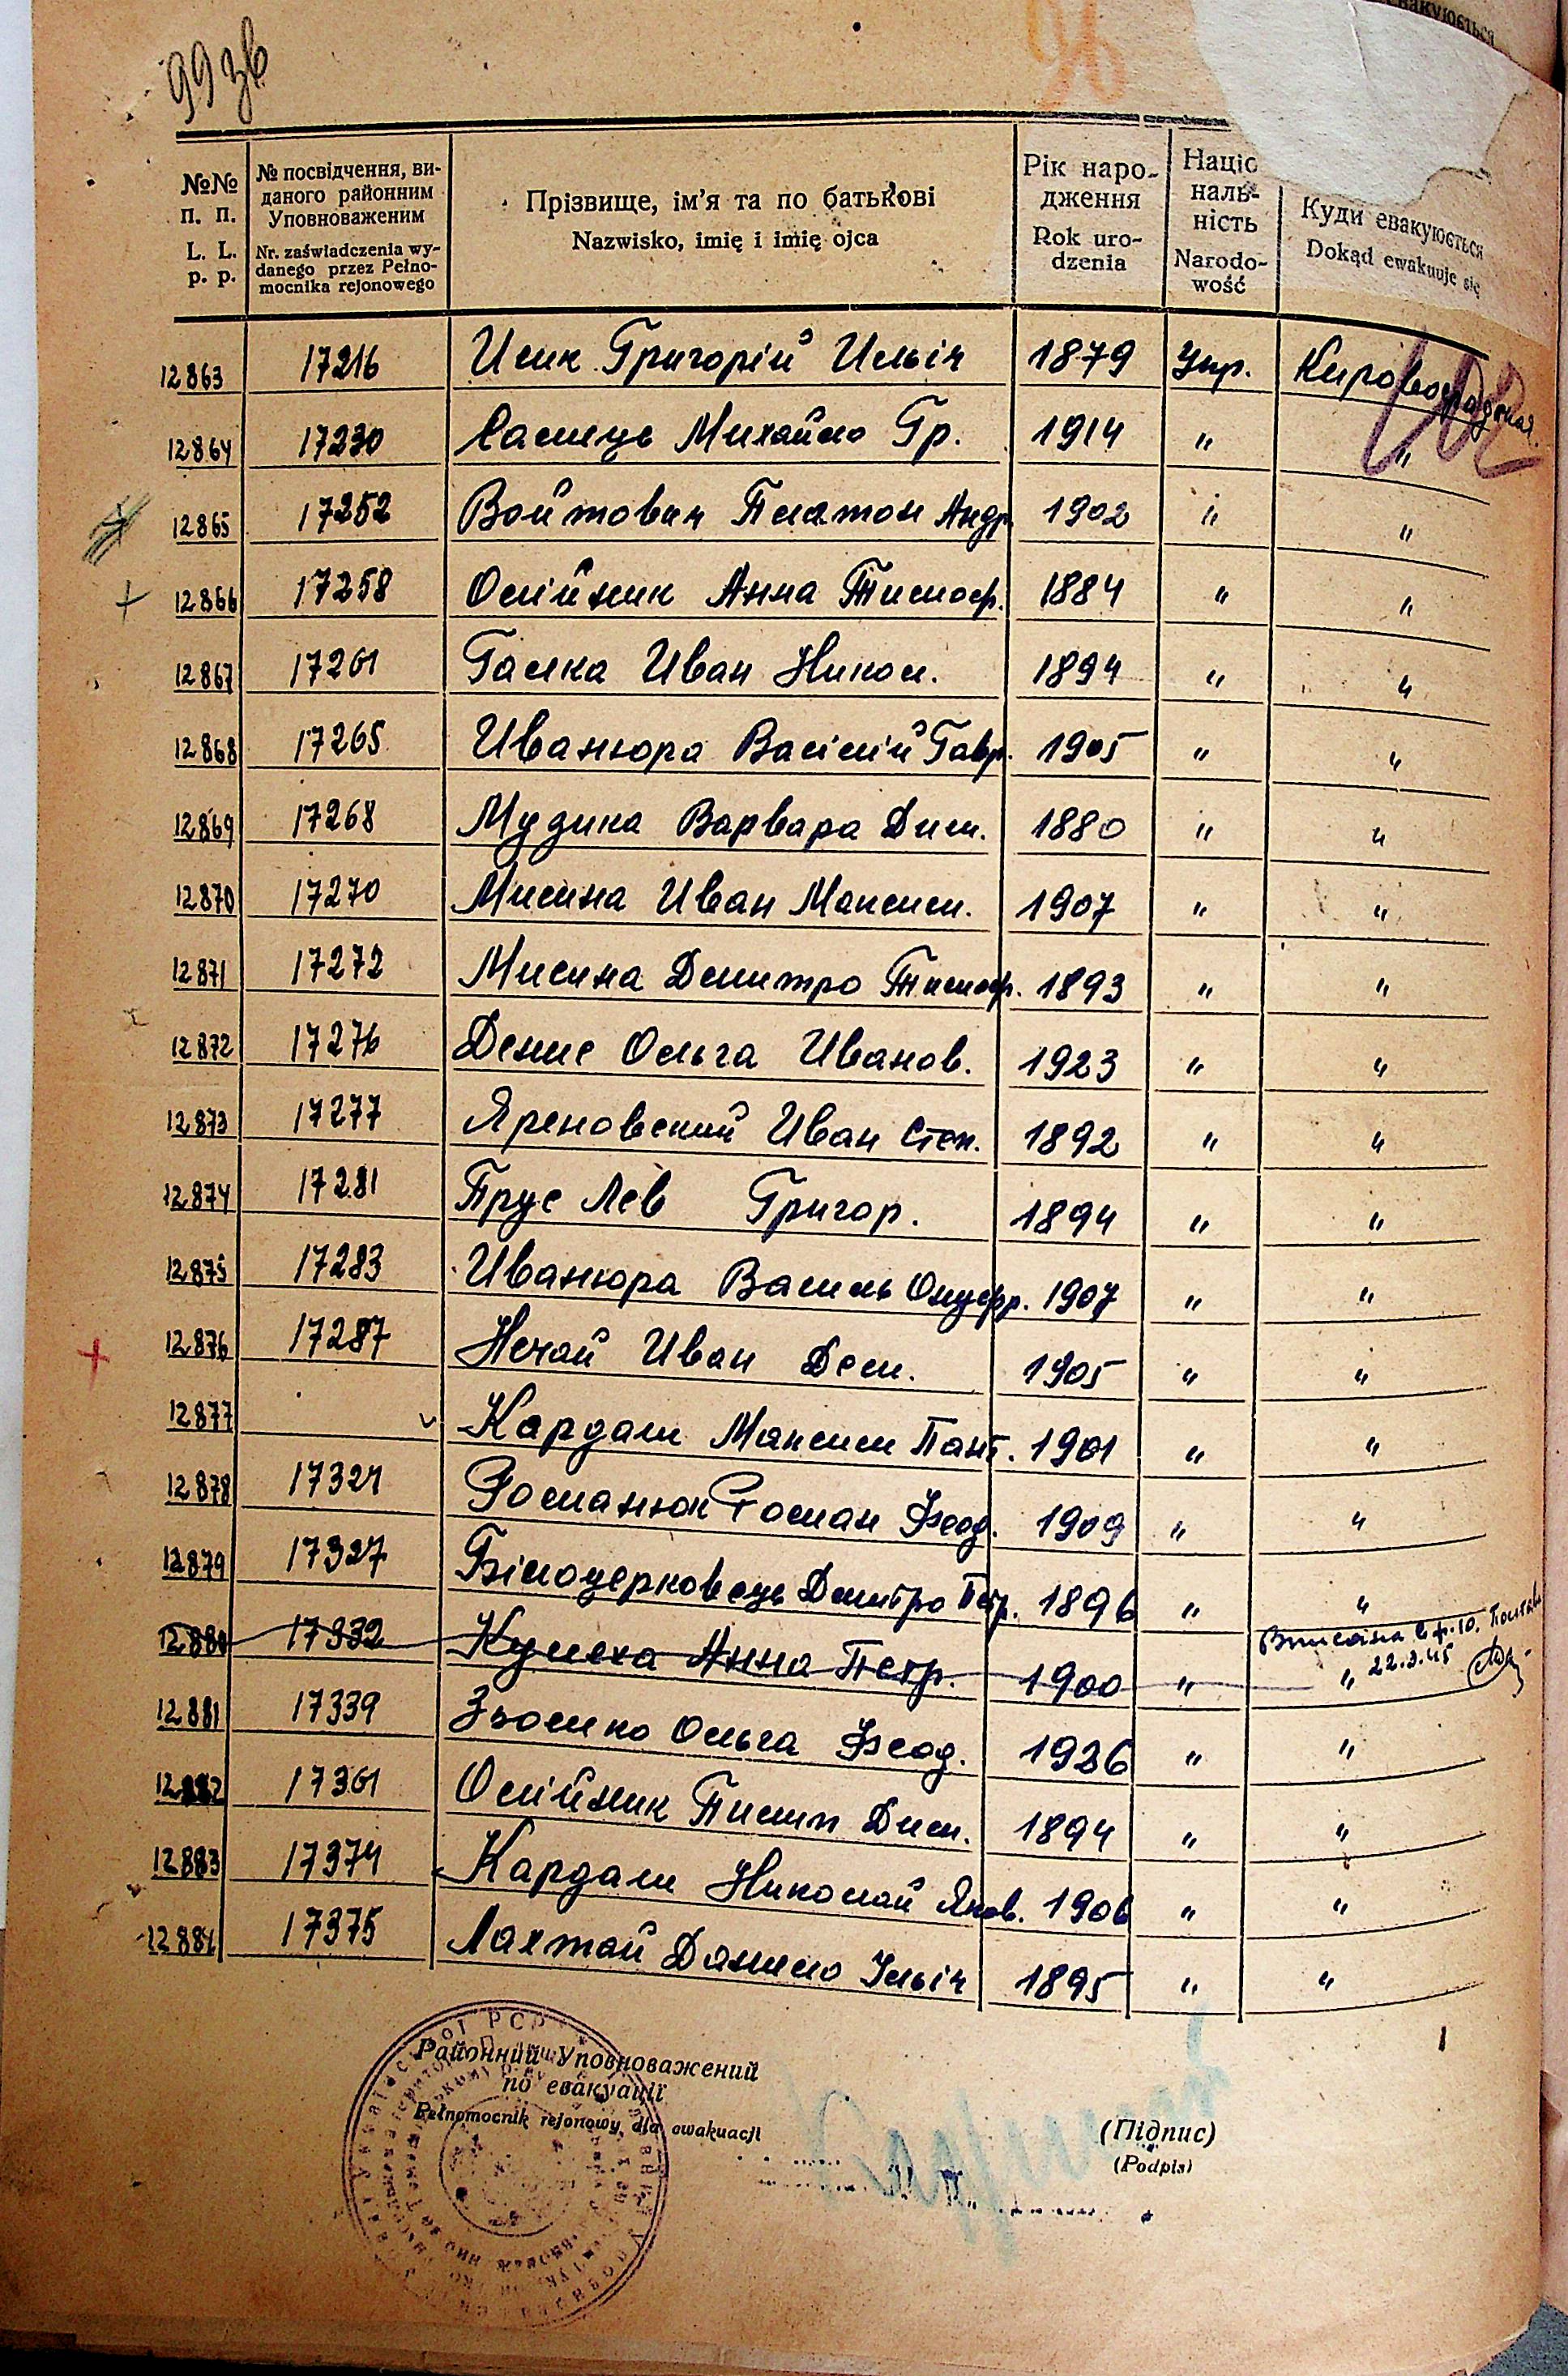 99 зв
96
евакуюється
№№ п. п. L. L. p. p.
№ посвідчення, виданого районним Уповноваженим
Nr. zaświadczenia wydanego przez Pełnomocnika rejonowego
Прізвище, ім'я та по батькові
Nazwisko, imię i imię ojca
Рік народження
Rok urodzenia
Націо наль- ність
Narodowość
Куди евакуюється
Dokąd ewakuuje się
12863 17216 Исик Григорій Ильіч 1879 Укр. Кировоградская.
12864 17230 Самець Михайло Гр. 1914 " "
12865 17252 Войтович Платон Андр. 1902 " "
12866 17258 Олійник Анна Тимоф. 1884 " "
12867 17261 Галка Иван Никол. 1894 " "
12868 17265 Иванюра Василій Гавр. 1905 " "
12869 17268 Мудика Варвара Дим. 1880 " "
12870 17270 Мисила Иван Максим. 1907 " "
12871 17272 Мисила Дмитро Тимоф. 1893 " "
12872 17276 Денис Ольга Иванов. 1923 " "
12873 17277 Яреновский Иван Степ. 1892 " "
12874 17281 Прус Лев Григор. 1894 " "
12875 17283 Иванюра Василь Онуфр. 1907 " "
12876 17287 Нечай Иван Дем. 1905 " "
12877 Кардаш Максим Пант. 1901 " "
12878 17324 Романюк Роман Феод. 1909 " "
12879 17327 Білоцерковець Дмитро Петр. 1896 " "
12880 17332 Анна Петр. 1900 " " 22.3.45
12881 17339 Зьомко Ольга Феод. 1926 " "
12882 17361 Олійник Пилип Дим. 1894 " "
12883 17374 Кардаш Николай Яков. 1906 " "
12884 17375 Лахтай Данило Ильіч 1895 " "
Районний Уповноважений
по евакуації
Pełnomocnik rejonowy dla ewakuacji
(Підпис)
(Podpis)